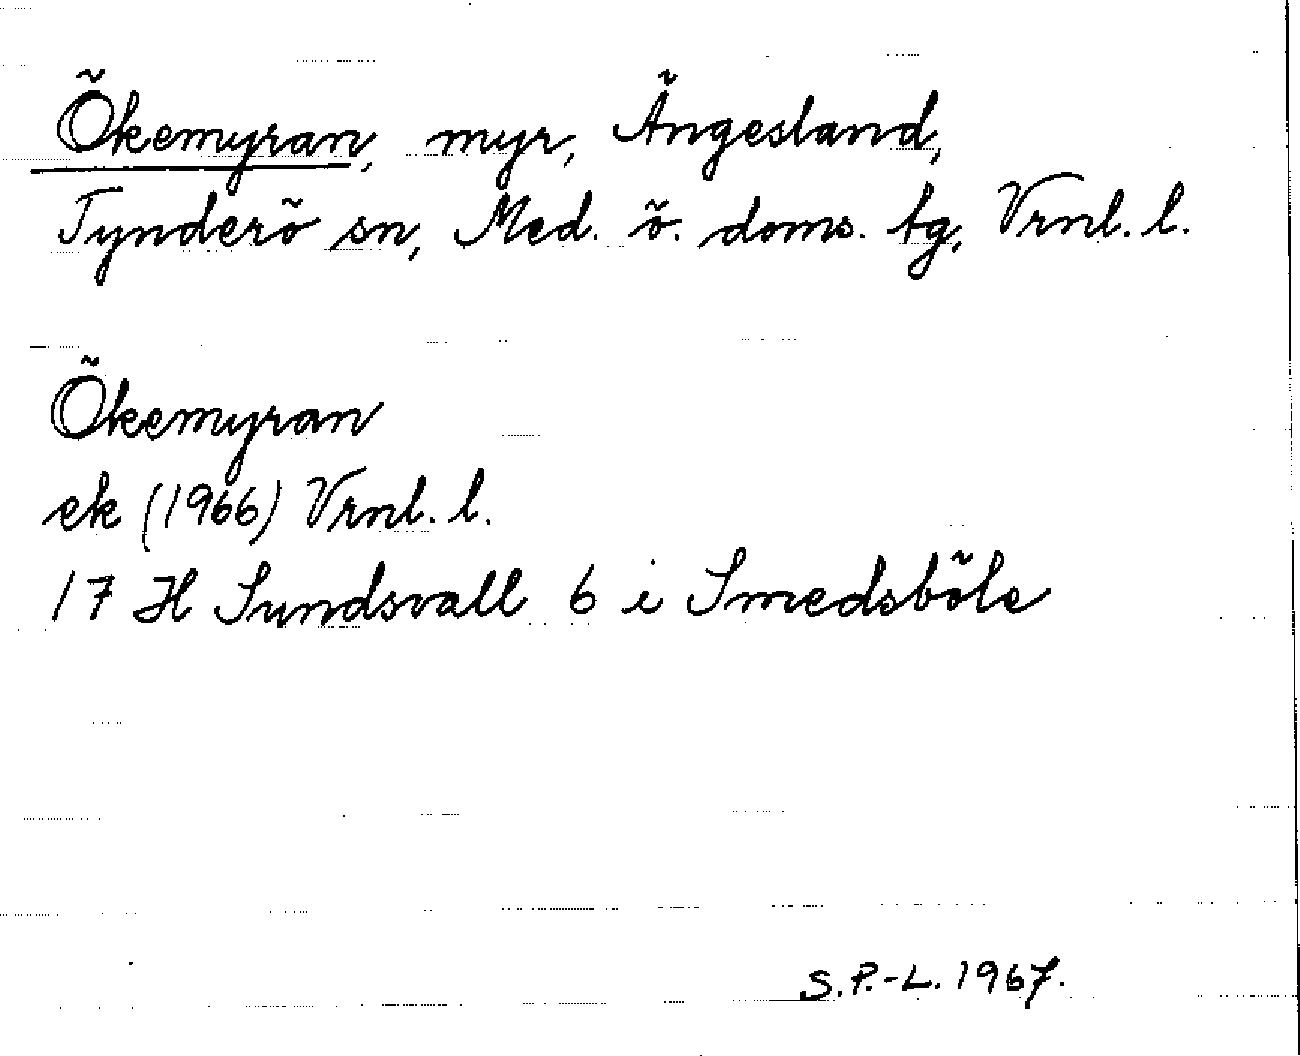 Ökemyran, myr, Ängesland,
Tynderö sn, Med. ö. doms. tg, Vrnl. l.
Ökemyran
ek (1966) Vrnl. l.
17 H Sundsvall 6 i Smedsböle
S.P.-L. 1967.